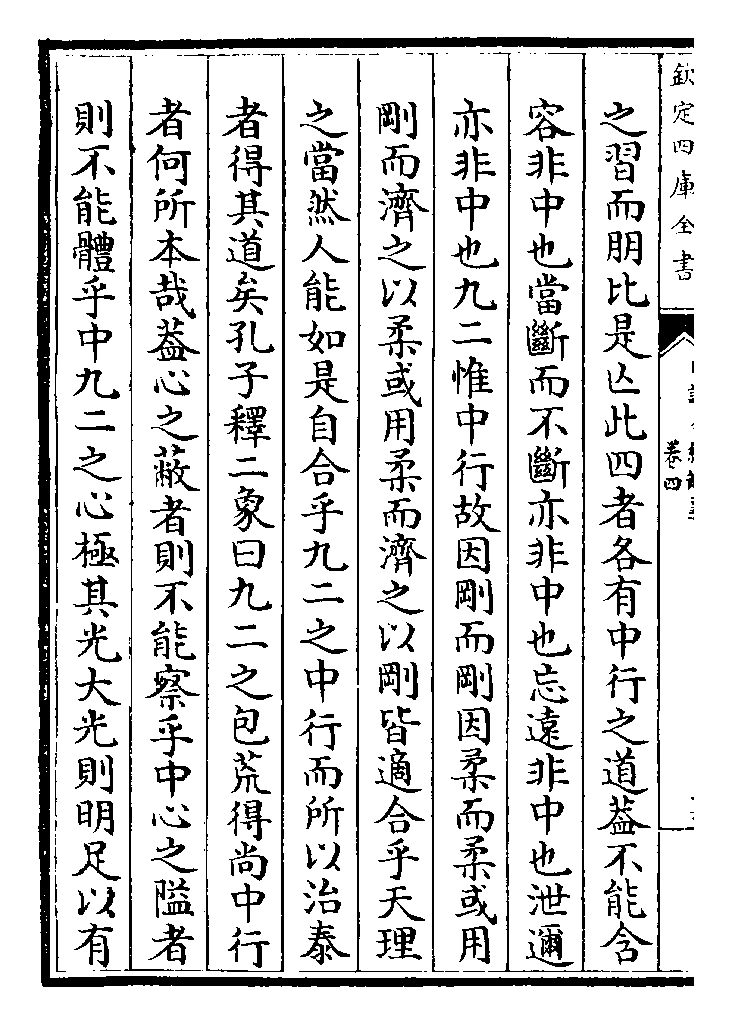 欽定四庫全書
卷四
之習而朋比是亾此四者各有中行之道葢不能含
容非中也當斷而不斷亦非中也忘遠非中也泄邇
亦非中也九二惟中行故因剛而剛因柔而柔或用
剛而濟之以柔或用柔而濟之以剛皆適合乎天理
之當然人能如是自合乎九二之中行而所以治泰
者得其道矣孔子釋二象曰九二之包荒得尚中行
者何所本哉葢心之蔽者則不能察乎中心之隘者
則不能體乎中九二之心極其光大光則明足以有